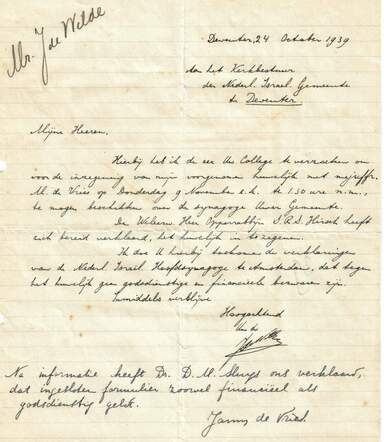 Mr. J de Wilde
Deventer, 24 October 1939
Aan het Kerkbestuur
der Nederl. Israel. Gemeente
te Deventer
Mijne Heeren,
Hierbij heb ik de eer Uw College te verzoeken om
voor de inzegening van mijn voorgenomen huwelijk met mejuffr.
M. de Vries op Donderdag 9 November a.s. te 1.30 ure n.m.,
te mogen beschikken over de synagoge Uwer Gemeente.
De Weleerw. Heer Opperrabbijn S.A.S. Hirsch heeft
zich bereid verklaard, het huwelijk in te zegenen.
Ik doe U hierbij toekomen de verklaringen
van de Nederl. Israel Hoofdsynagoge te Amsterdam, dat tegen
het huwelijk geen godsdienstige en financieele bezwaren zijn.
Inmiddels verblijve
Hoogachtend
Uw dw
Na informatie heeft Dr. D. M. Sluys ons verklaard,
dat ingesloten formulier zoowel financieel als
godsdienstig geldt.
de Vries.